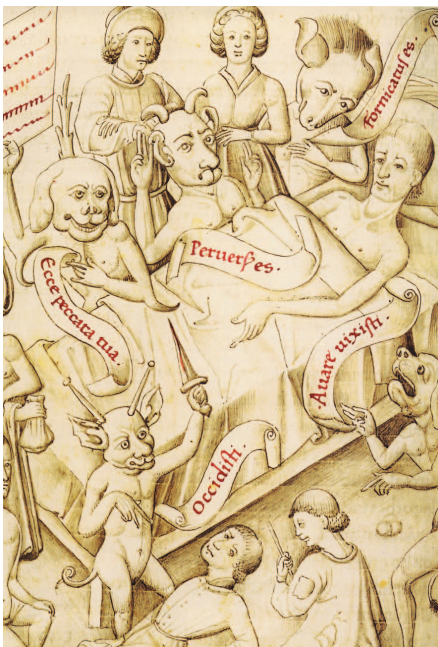 fornicatus es.
Periurus es.
Ecce peccata tua.
Avare vixisti.
Occidisti.